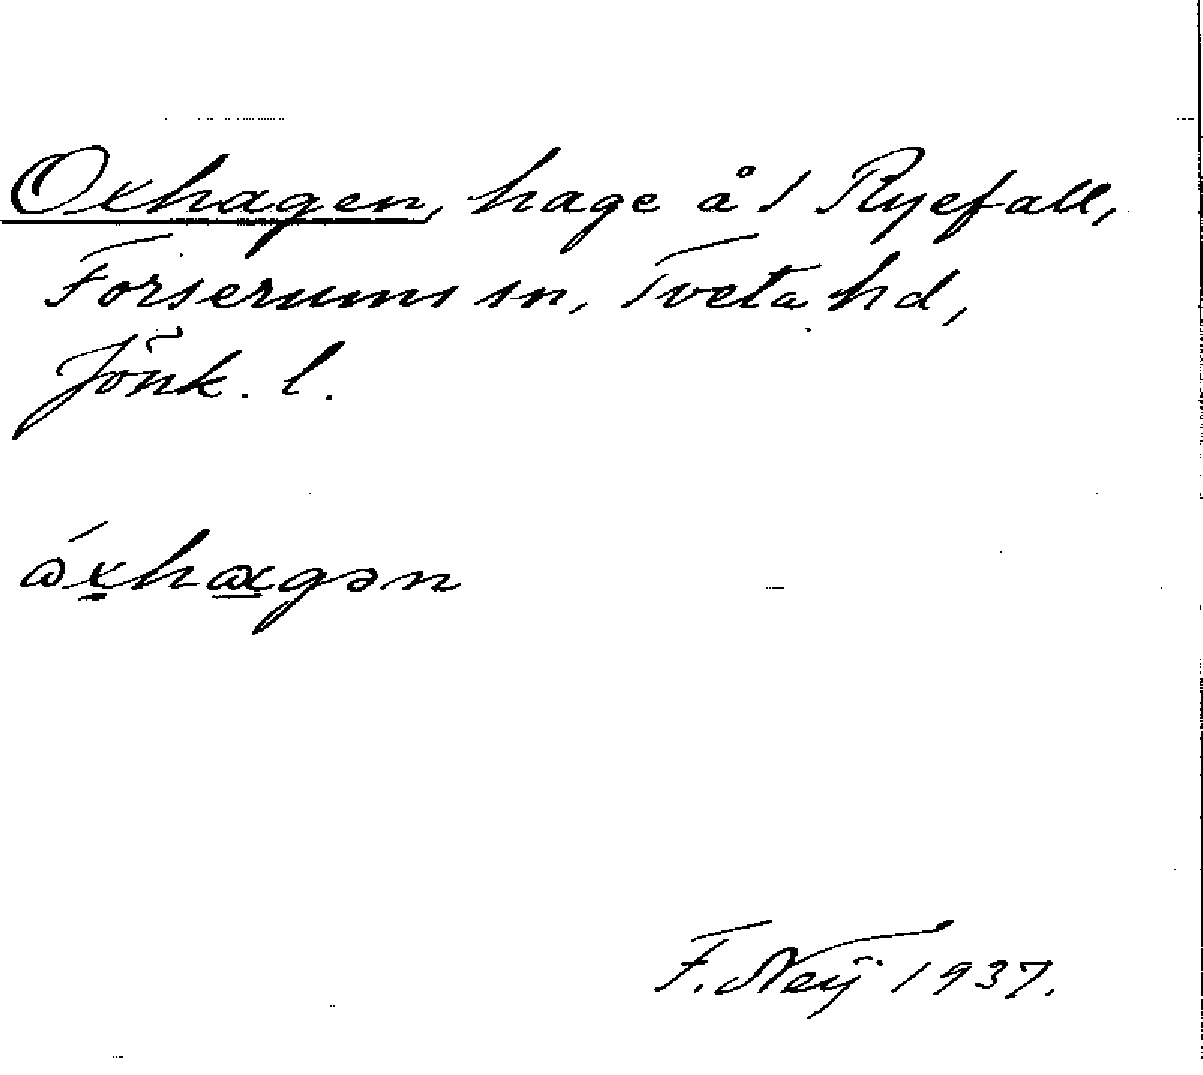 Oxhagen, hage å 1 Ryefall,
Forserums sn, Tveta hd,
Jönk. l.
F. Neij 1937.